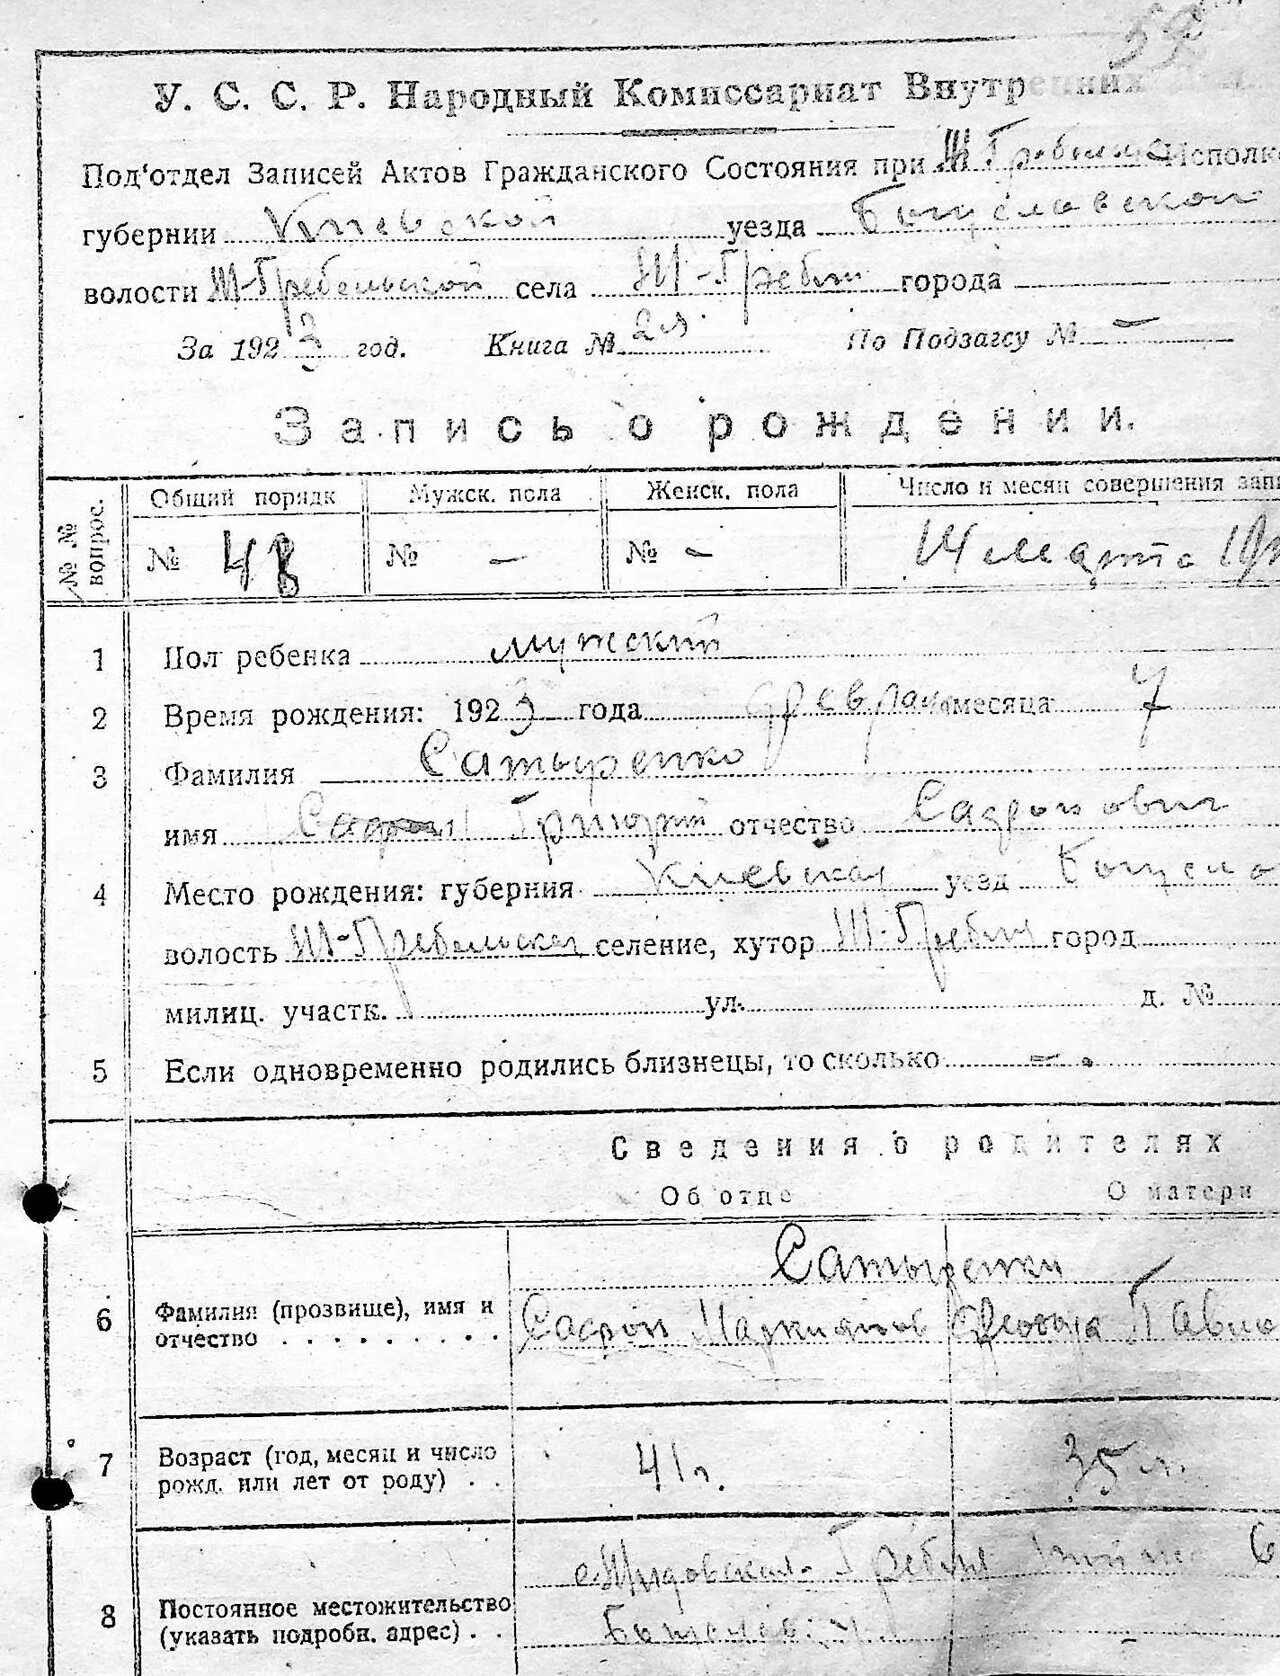 59
У. С. С. Р. Народный Комиссариат Внутренних
Под'отдел Записей Актов Гражданского Состояния при Ж Гребельс Исполк
губернии Киевской уезда Богуславской
волости Ж-Гребельской села Ж-Гребля города
За 1923 год. Книга № 2я По Подзагсу № —
Запись о рождении.
№№ вопрос. Общий порядк Мужск. пола Женск. пола Число и месяц совершения запи
№ 48 № — № — 14 марта 19
1 Пол ребенка мужской
2 Время рождения: 1923 года февраля месяца 7
3 Фамилия Сатыренко
имя Сафрон Григорий отчество Сафронович
4 Место рождения: губерния Киевская уезд Богусла
волость Ж-Гребельская селение, хутор Ж-Гребля город
милиц. участк. ул. д. №
5 Если одновременно родились близнецы, то сколько — .
Сведения о родителях
Об отце О матери
Сатыренки
6 Фамилия (прозвище), имя и
отчество Сафрон Маркиянов Павло
7 Возраст (год, месяц и число
рожд. или лет от роду) 41 г. 35 л.
с. Жидовская-Гребля
8 Постоянное местожительство
(указать подробн. адрес)